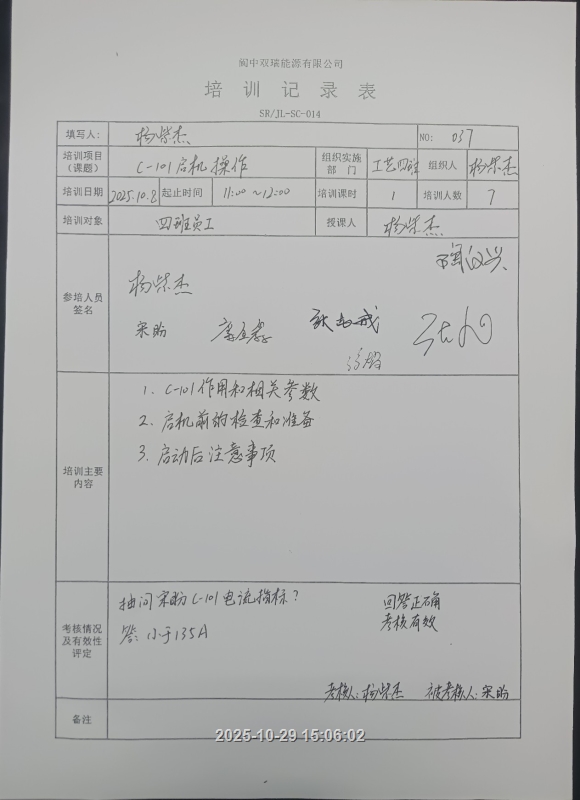 阆中双瑞能源有限公司
培训记录表
SR/JL-SC-014
填写人： 杨紫杰 NO: 037
培训项目（课题） C-101启机操作 组织实施部门 工艺四班 组织人 杨紫杰
培训日期 2025.10.8 起止时间 11:00 ~12:00 培训课时 1 培训人数 7
培训对象 四班员工 授课人 杨紫杰
参培人员签名
杨紫杰
宋盼
培训主要内容
1. C-101作用和相关参数
2. 启机前的检查和准备
3. 启动后注意事项
考核情况及有效性评定
抽问宋盼C-101电流指标？ 回答正确
答：小于135A 考核有效
考核人：杨紫杰 被考核人：宋盼
备注
2025-10-29 15:06:02